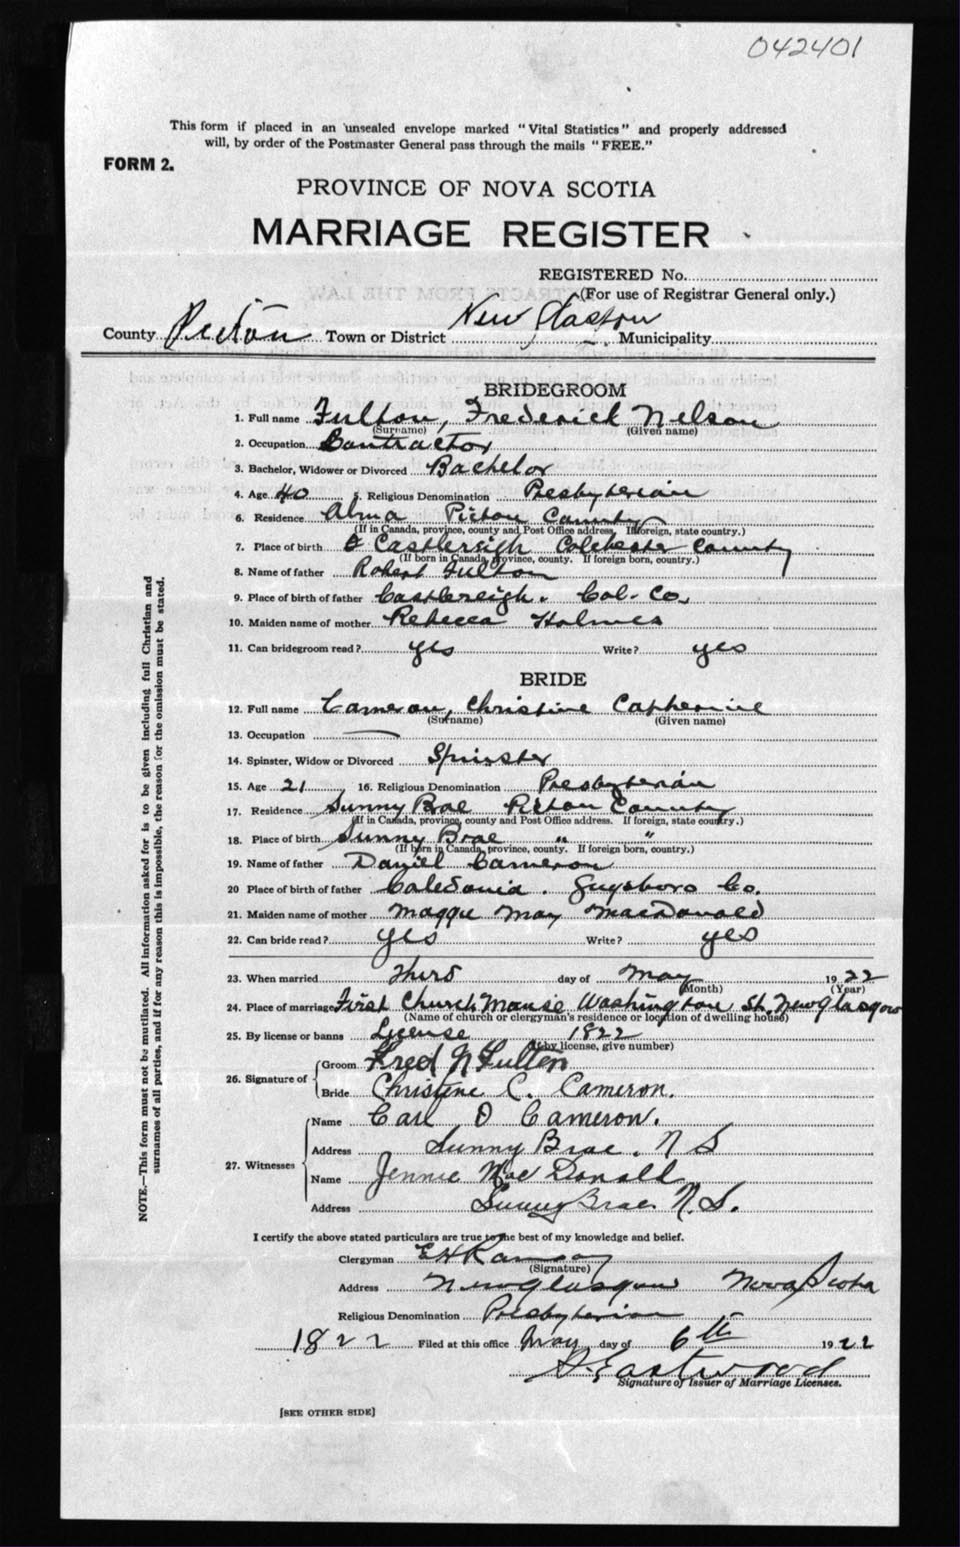 042401
This form if placed in an unsealed envelope marked "Vital Statistics" and properly addressed
will, by order of the Postmaster General pass through the mails "FREE."
FORM 2.
PROVINCE OF NOVA SCOTIA
MARRIAGE REGISTER
REGISTERED No.
(For use of Registrar General only.)
County Pictou Town or District New Glasgow Municipality
BRIDEGROOM
1. Full name Fulton, Frederick Nelson
(Surname) (Given name)
2. Occupation Contractor
3. Bachelor, Widower or Divorced Bachelor
4. Age 40 5. Religious Denomination Presbyterian
6. Residence Alma Pictou County
(If in Canada, province, county and Post Office address. If foreign, state country.)
7. Place of birth Castlereigh Colchester County
(If born in Canada, province, county. If foreign born, country.)
8. Name of father Robert Fulton
9. Place of birth of father Castlereigh. Col. Co.
10. Maiden name of mother Rebecca Holmes
11. Can bridegroom read? yes Write? yes
BRIDE
12. Full name Cameron, Christine Catherine
(Surname) (Given name)
13. Occupation —
14. Spinster, Widow or Divorced Spinster
15. Age 21 16. Religious Denomination Presbyterian
17. Residence Sunny Brae Pictou County
(If in Canada, province, county and Post Office address. If foreign, state country.)
18. Place of birth Sunny Brae " "
(If born in Canada, province, county. If foreign born, country.)
19. Name of father Daniel Cameron
20 Place of birth of father Caledonia. Guysboro Co.
21. Maiden name of mother Maggie May MacDonald
22. Can bride read? yes Write? yes
23. When married Third day of May 1922
(Month) (Year)
24. Place of marriage First Church Manse Washington St. New Glasgow
(Name of church or clergyman's residence or location of dwelling house)
25. By license or banns License 1822
(If by license, give number)
26. Signature of Groom Fred N Fulton
Bride Christine C. Cameron.
27. Witnesses Name Carl D Cameron.
Address Sunny Brae. N S
Name Jennie MacDonald
Address Sunny Brae N.S.
I certify the above stated particulars are true to the best of my knowledge and belief.
Clergyman E H Ramsay
(Signature)
Address New Glasgow Nova Scotia
Religious Denomination Presbyterian
1822 Filed at this office May day of 6th 1922
Eastwood
Signature of Issuer of Marriage Licenses.
[SEE OTHER SIDE]
NOTE.—This form must not be mutilated. All information asked for is to be given including full Christian and
surnames of all parties, and if for any reason this is impossible, the reason for the omission must be stated.